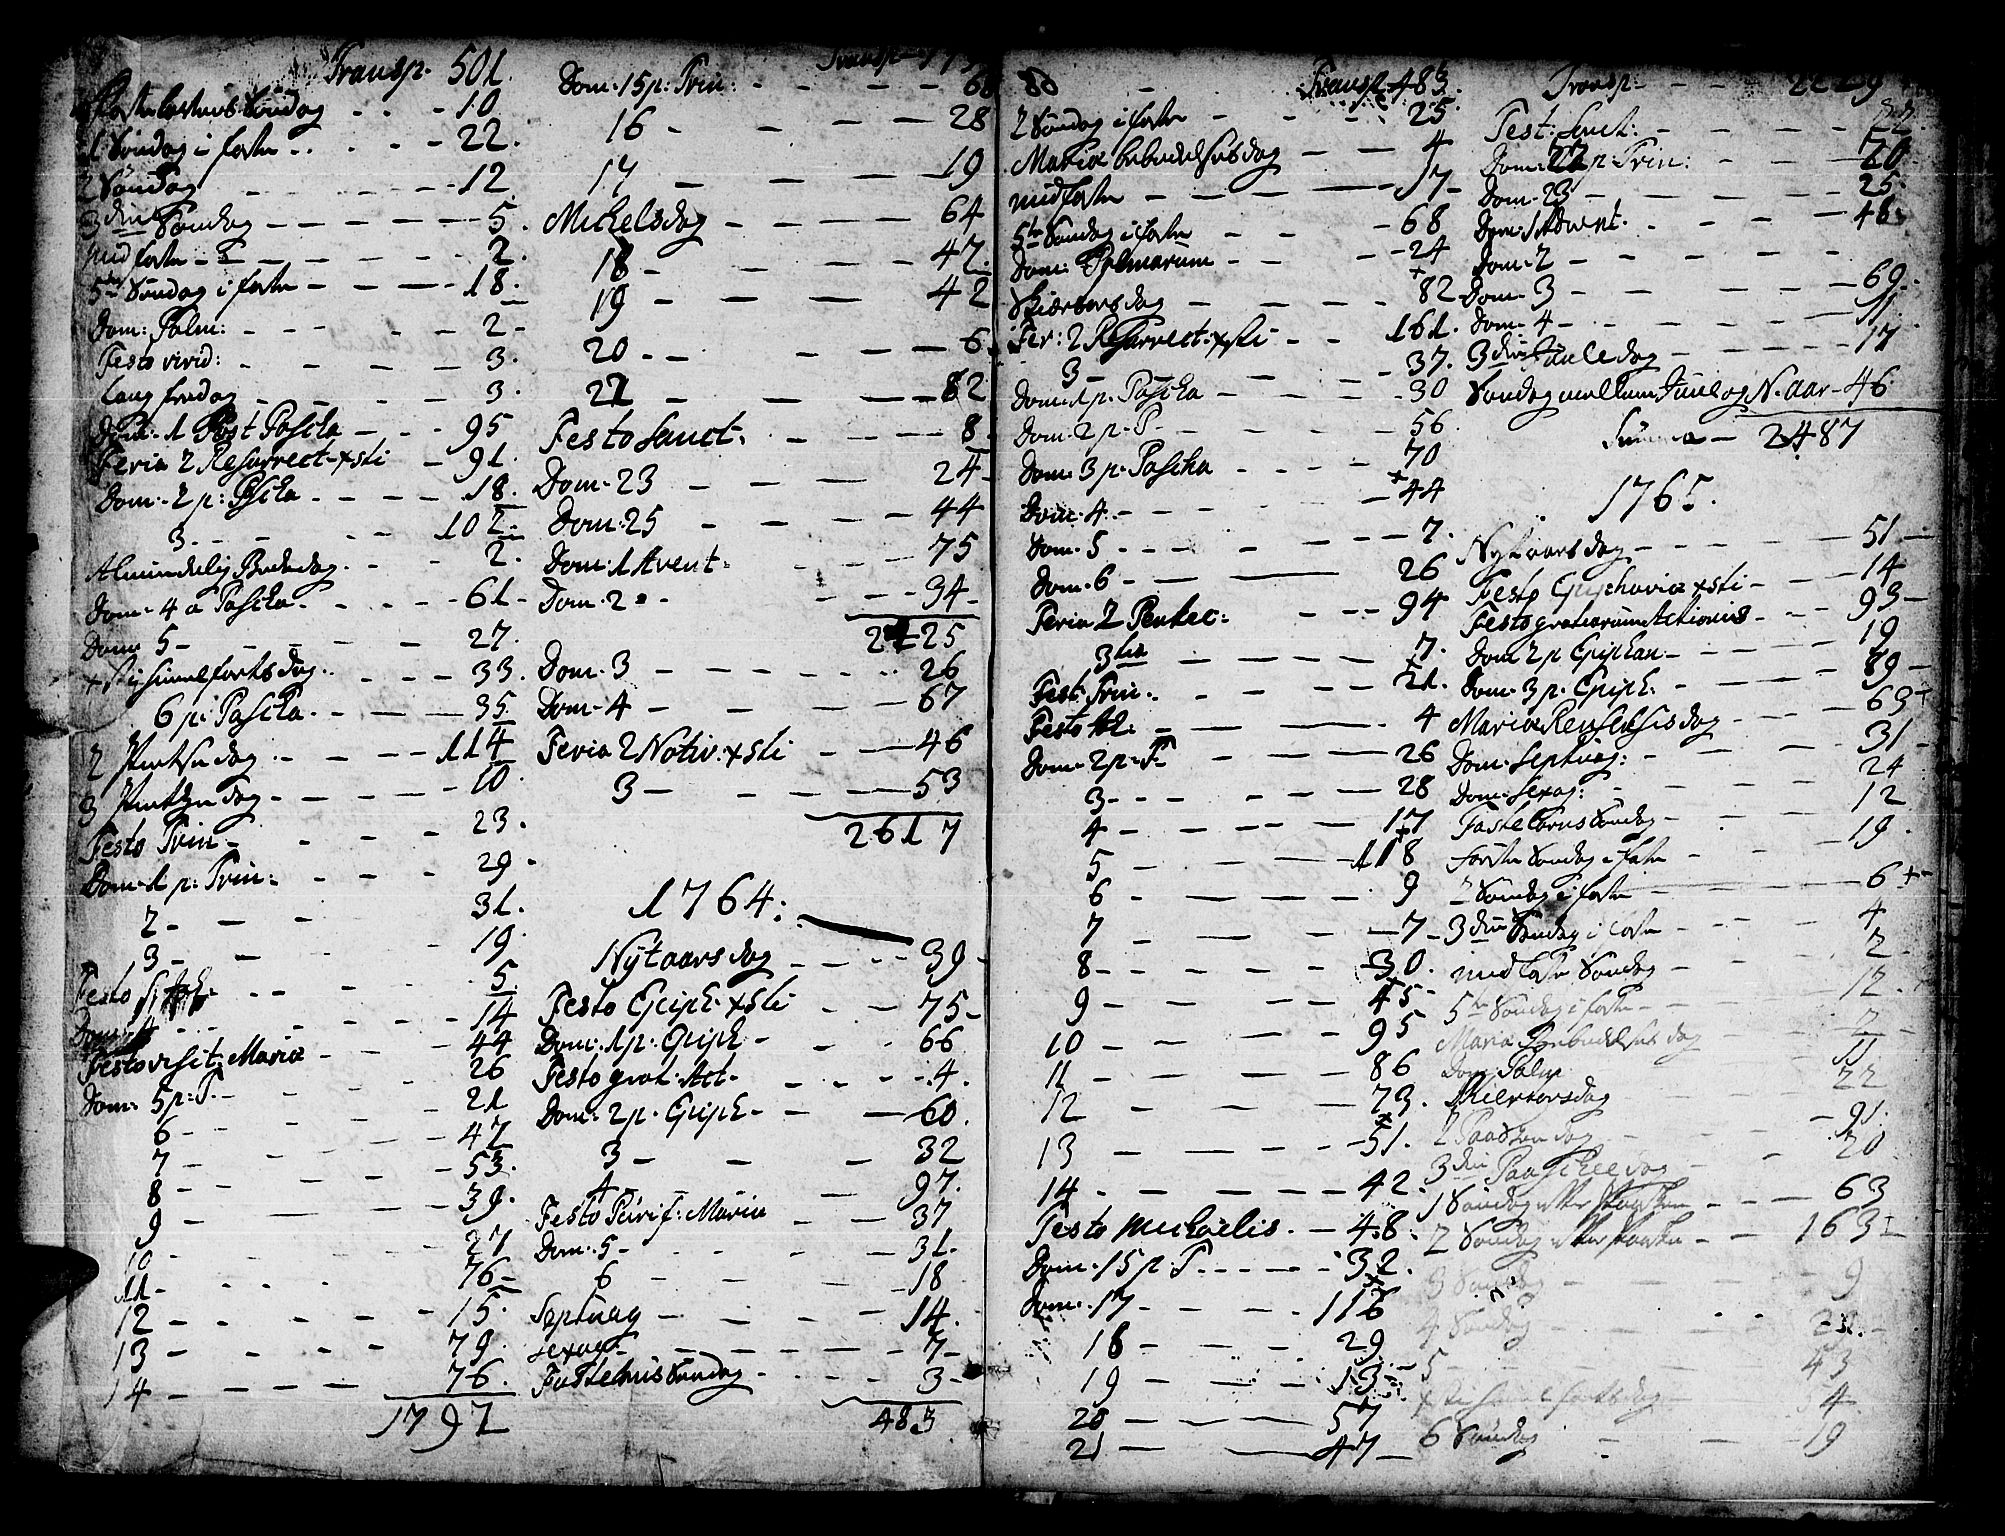 Transp. 501.
Fastelavens Søndag - - - 10
1 Søndag i faste - - - 22.
2 Søndag - - - 12
3die Søndag - - - 5.
midfaste - - - 2.
5te Søndag i faste - - - 18.
Dom: Palm: - - - 2 -
Festo virid: - - - 3.
Langfredag - - - 3.
Dom. 1 Post Pascha - - - 95
Feria 2 Resurrect. xsti - 91.
Dom. 2 p: Pascha - - - 18.
3. - - - 102.
Almindelig Bededag - - - 2.
Dom. 4 a Pascha - - - 61 -
Dom 5 - - - 27.
xsti himelfartsdag - - - 33.
6 p. Pascha - - - 35.
2 Pintsedag - - - 114
3 Pintsedag - - - 10
Festo Trin - - - 23.
Dom. 1 p: Trin: - - - 29.
2 - - - 31.
3 - - - 19.
Festo - - - 5
Dom. 4 - - - 14
Festo visit: Mariæ - - - 44
Dom. 5 p: T. - - - 26
6 - - - 21
7 - - - 47
8 - - - 53.
9 - - - 39.
10 - - - 27
11 - - - 76 -
12 - - - 15.
13 - - - 79.
14 - - - 76.
1797
Transp
Dom. 15 p: Trin: - - - 68
16 - - - 28
17 - - - 19
Michelsdag - - - 64
18 - - - 47.
19 - - - 42
20 - - - 6.
21 - - - 82
Festo Sanct. - - - 8.
Dom. 23 - - - 24 -
Dom. 25 - - - 44
Dom. 1 Avent - - - 75
Dom. 2 - - - 34 -
2425
Dom. 3 - - - 26
Dom. 4 - - - 67
Feria 2 Nativ. xsti - - - 46
3 - - - 53
2617
1764.
Nytaarsdag - - - 39 -
Festo Epiph. xsti - - - 75 -
Dom: 1 p. Epiph - - - 66
Festo grat. Act. - - - 4.
Dom. 2 p. Epiph - - - 60.
3 - - - 32
4 - - - 97.
Festo Purif: Mariæ - - - 37
Dom. 5 - - - 31.
6 - - - 18
Septuag - - - 14.
Sexag - - - 7 -
Fastelavns Søndag - - - 3 -
483
Transp 483.
2 Søndag i faste - - - 25
Mariæ bebudelsesdag - - - 4
midfaste - - - 17 -
5te Søndag i faste - - - 68
Dom: Palmarum - - - 24
Skiærtorsdag - - - 82
Fer: 2 Resurrect. xsti - - 161.
3 - - - 37.
Dom. 1 p. Pascha - - - 30
Dom. 2 p. P - - - 56
Dom. 3 p. Pascha - - - 70
Dom. 4 - - - 44
Dom. 5 - - - 7.
Dom. 6 - - - 26
Feria 2 Pentec: - - - 94
3tia - - - 7.
Fest. Trin. - - - 21.
Festo - - - 4
Dom. 2 p. T - - - 26
3 - - - 28
4 - - - 17
5 - - - 118
6 - - - 9
7 - - - 7 -
8 - - - 30.
9 - - - 45 -
10 - - - 95
11 - - - 86
12 - - - 73.
13 - - - 51.
14 - - - 42.
Festo Michaelis. - 48.
Dom. 15 p. T. - - - 32.
Dom. 17 - - - 116
18 - - - 29
19 - - - 13 -
20 - - - 57
21 - - - 47 -
Transp - - - 2229
Fest: Sanct: - - - 22.
Dom: 22 p: Trin: - - - 20
Dom. 23 - - - 25.
Dom. 1 Advent. - - - 48
Dom. 2 - - -
Dom. 3 - - - 69.
Dom. 4 - - - 11.
3die Juuledag - - - 17
Søndag mellem Juul og N. aar - 46.
Summa - 2487
1765.
Nytaarsdag - - - 51 -
Festo Epiphaniæ xsti - - - 14
Festo gratiarum Actionis - - - 93 -
Dom 2 p Epiphan - - - 19
Dom. 3 p. Epiph. - - - 89 -
Mariæ Renselsisdag - - - 63 +
Dom. Septuag: - - - 31 -
Dom. Sexag: - - - 24.
Fastelavns Søndag - - - 12
første Søndag i faste - - - 19.
2 Søndag i faste - - - 6 + -
3die Søndag i faste - - - 4
midfaste Søndag - - - 2 -
5te Søndag i faste - - - 12.
Mariæ Bebudelses dag - - - 2 -
Dom Palm - - - 11
Skiertorsdag - - - 22
2 Paaskedag - - - 91.
3die Paaskedag - - - 20
1 Søndag efter Paaske - - - 63
2 Søndag efter Paaske - - - 163
3 Søndag - - - 9
4 Søndag - - -
5 - - - 43
xsti himmelfartsdag - - - 4.
6 Søndag - - - 19